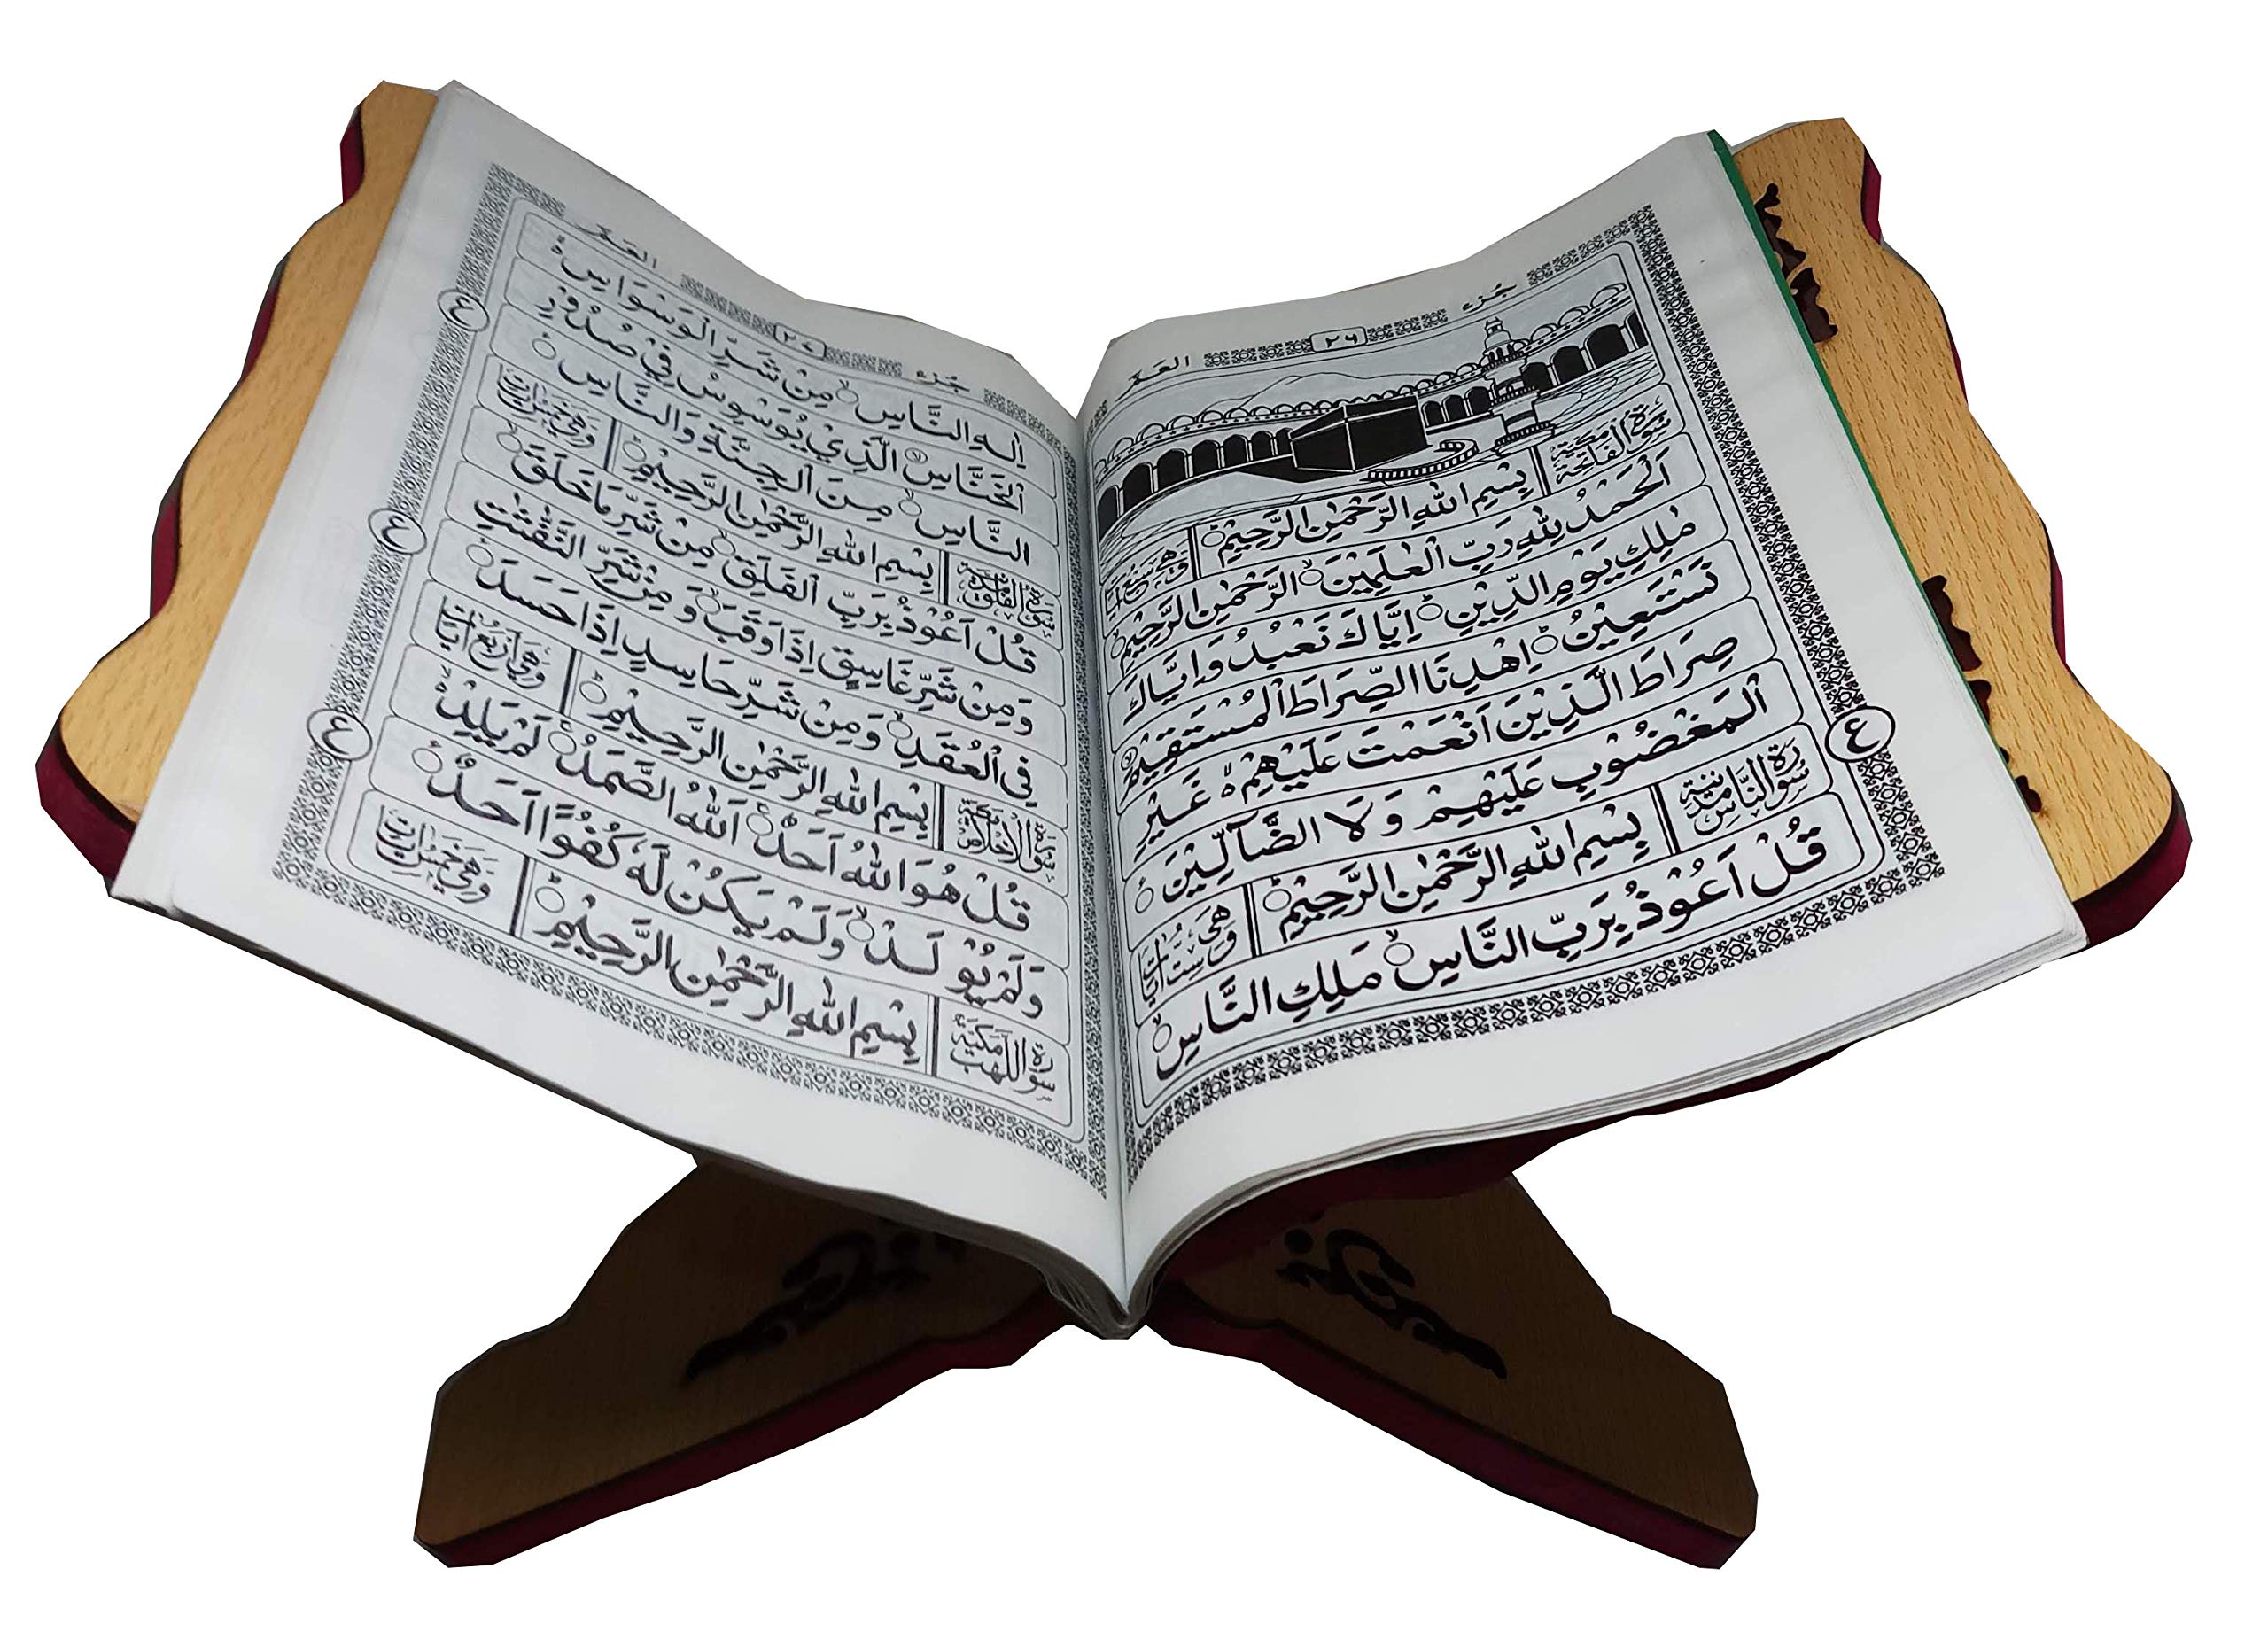 جُزء ٢٦ العَمّ
سُورَةُ الْفَاتِحَةِ مَكِّيَّةٌ بِسْمِ اللّٰهِ الرَّحْمٰنِ الرَّحِيْمِ وَهِيَ سَبْعُ
اَلْحَمْدُ لِلّٰهِ رَبِّ الْعٰلَمِيْنَ الرَّحْمٰنِ الرَّحِيْمِ
مٰلِكِ يَوْمِ الدِّيْنِ اِيَّاكَ نَعْبُدُ وَاِيَّاكَ
نَسْتَعِيْنُ اِهْدِنَا الصِّرَاطَ الْمُسْتَقِيْمَ
صِرَاطَ الَّذِيْنَ اَنْعَمْتَ عَلَيْهِمْ غَيْرِ
الْمَغْضُوْبِ عَلَيْهِمْ وَلَا الضَّآلِّيْنَ
سُورَةُ النَّاسِ مَدَنِيَّةٌ بِسْمِ اللّٰهِ الرَّحْمٰنِ الرَّحِيْمِ وَهِيَ سِتُّ اٰيَاتٍ
قُلْ اَعُوْذُ بِرَبِّ النَّاسِ مَلِكِ النَّاسِ
ع
جُزء ٢٧ العَمّ
اِلٰهِ النَّاسِ مِنْ شَرِّ الْوَسْوَاسِ
الْخَنَّاسِ الَّذِيْ يُوَسْوِسُ فِيْ صُدُوْرِ
النَّاسِ مِنَ الْجِنَّةِ وَالنَّاسِ
سُورَةُ الْفَلَقِ بِسْمِ اللّٰهِ الرَّحْمٰنِ الرَّحِيْمِ وَهِيَ خَمْسُ اٰيَاتٍ
قُلْ اَعُوْذُ بِرَبِّ الْفَلَقِ مِنْ شَرِّ مَا خَلَقَ
وَمِنْ شَرِّ غَاسِقٍ اِذَا وَقَبَ وَمِنْ شَرِّ النَّفّٰثٰتِ
فِي الْعُقَدِ وَمِنْ شَرِّ حَاسِدٍ اِذَا حَسَدَ
سُورَةُ الْاِخْلَاصِ مَكِّيَّةٌ بِسْمِ اللّٰهِ الرَّحْمٰنِ الرَّحِيْمِ وَهِيَ اَرْبَعُ اٰيَاتٍ
قُلْ هُوَ اللّٰهُ اَحَدٌ اَللّٰهُ الصَّمَدُ لَمْ يَلِدْ
وَلَمْ يُوْلَدْ وَلَمْ يَكُنْ لَّهٗ كُفُوًا اَحَدٌ
سُورَةُ اللَّهَبِ مَكِّيَّةٌ بِسْمِ اللّٰهِ الرَّحْمٰنِ الرَّحِيْمِ وَهِيَ خَمْسُ اٰيَاتٍ
ع
ع
ع